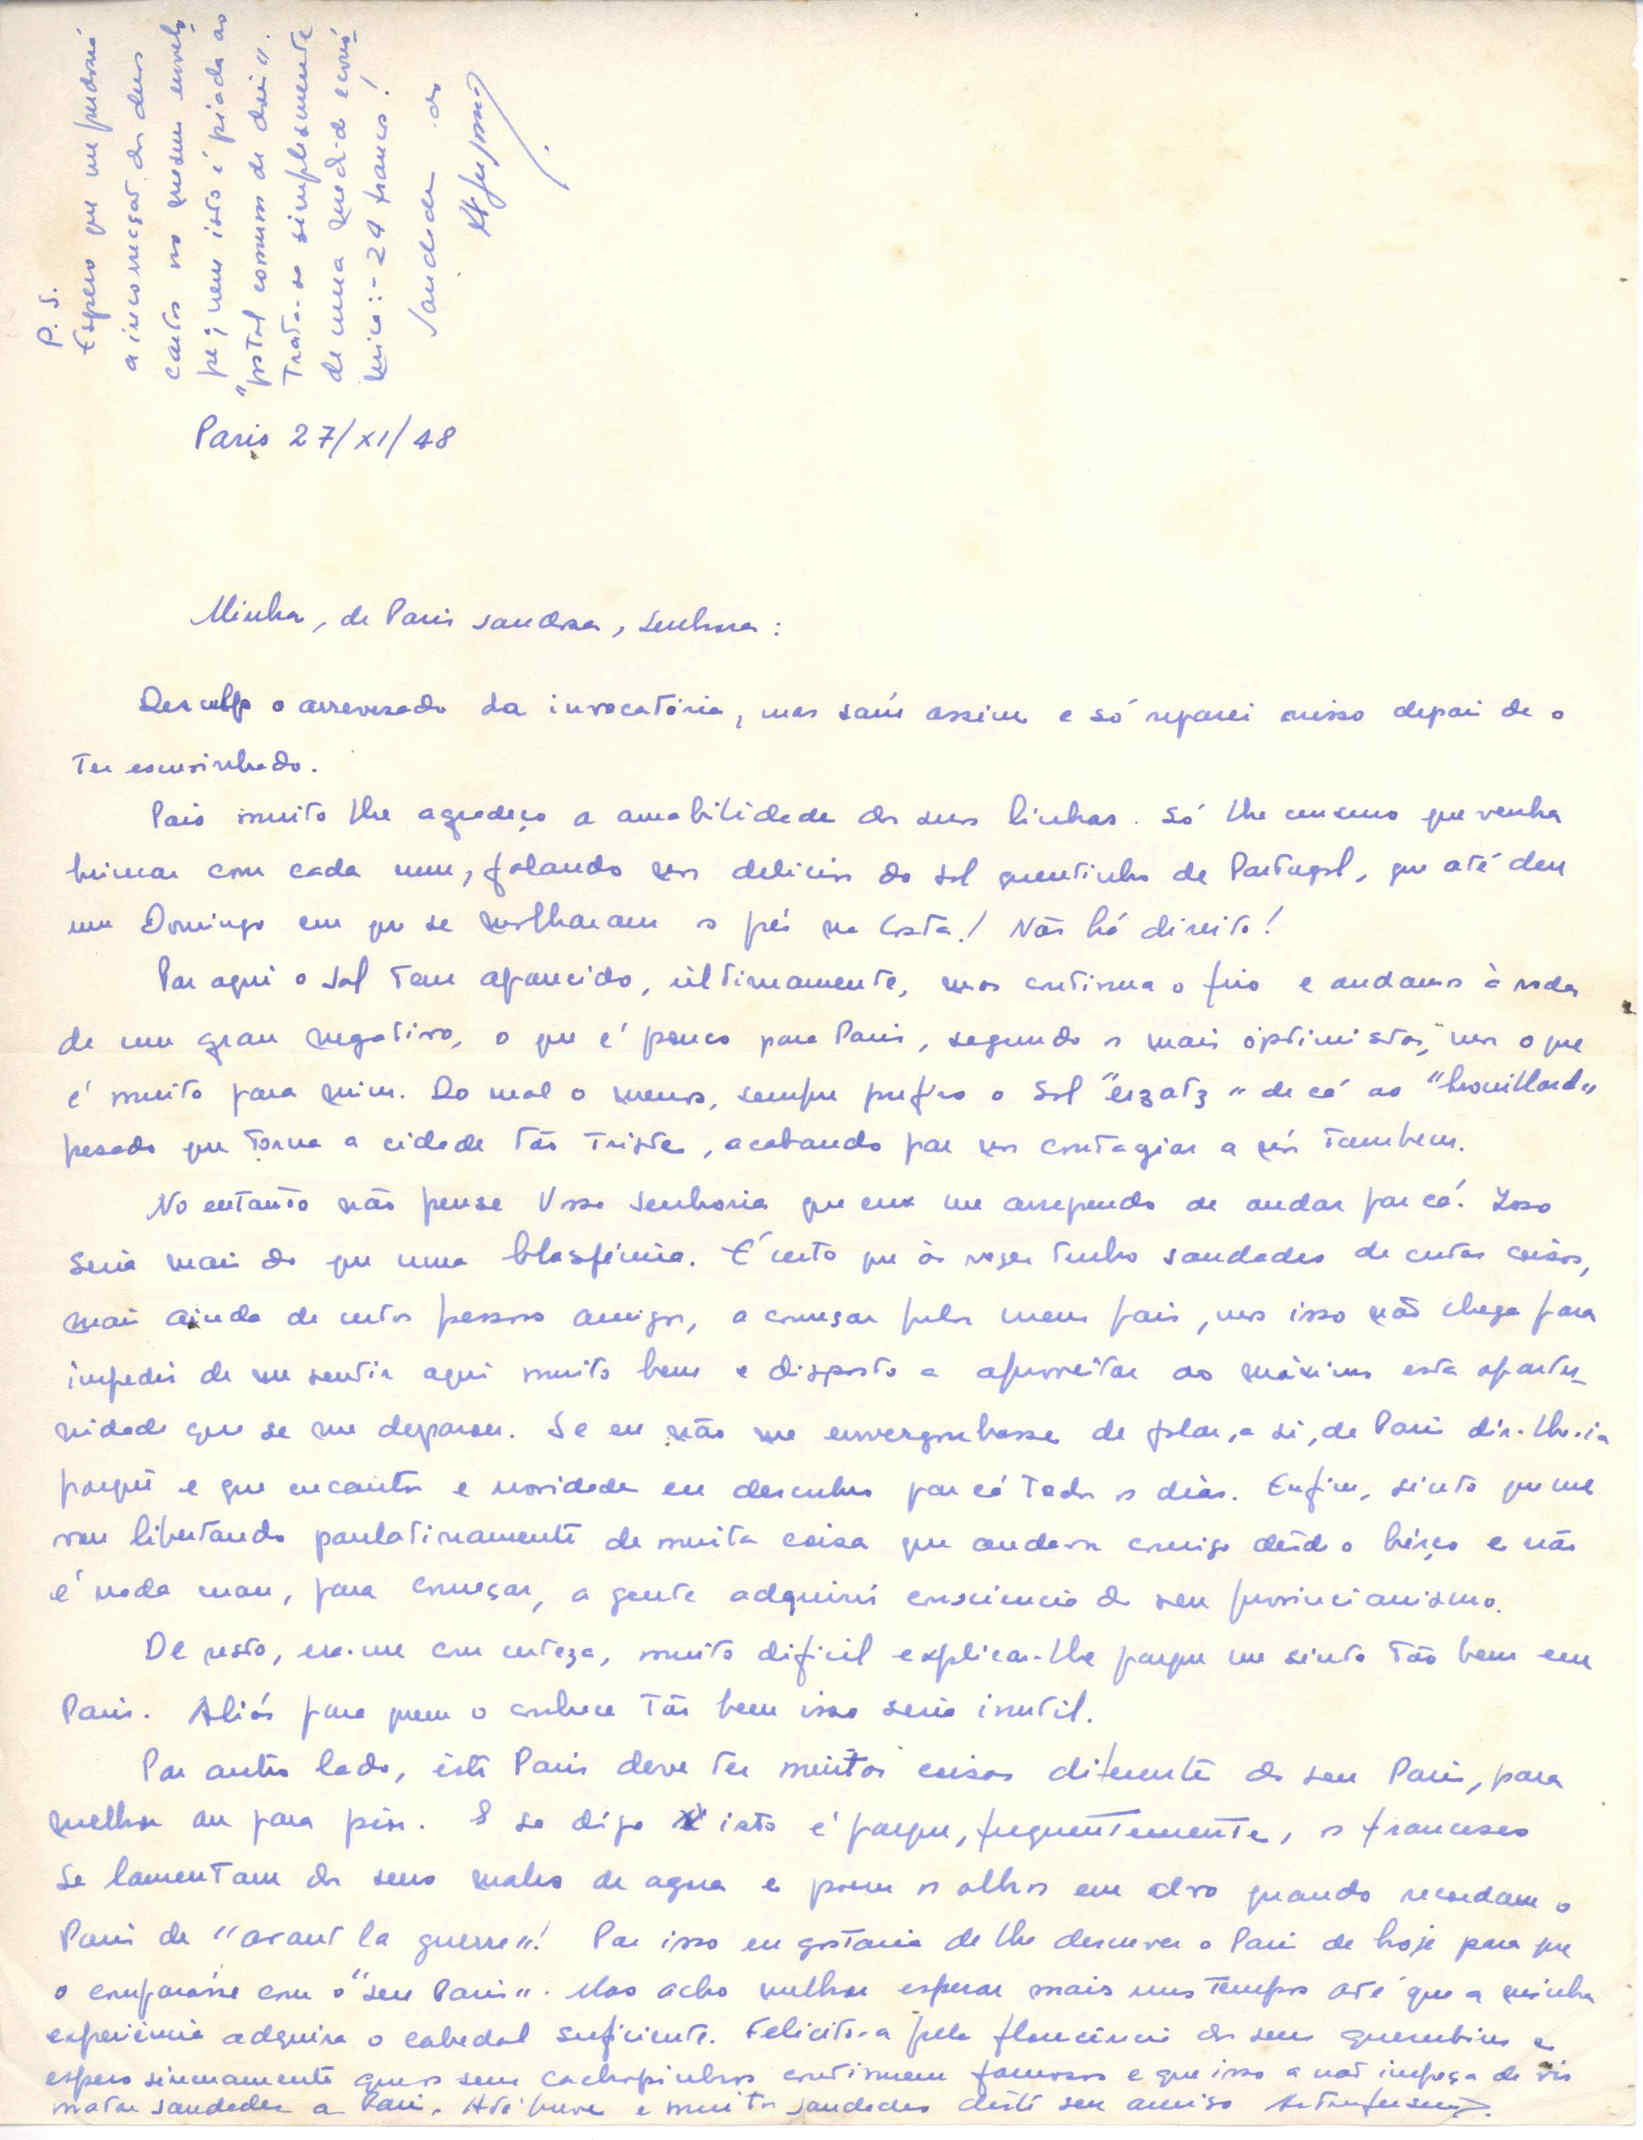 P. S.
Espero que me perdoará
a incorrecção das duas
cartas no mesmo envelo-
pe; nem isto é piada ao
"postal comum de dois".
Trata-se simplesmente
de uma medida econó-
mica: - 24 francos!
Saudades do
Paris 27/XI/48
Minha, de Paris saudosa, Senhora:
Desculpe o arrevesado da invocatória, mas saíu assim e só reparei nisso depois de o
ter escrevinhado.
Pois muito lhe agradeço a amabilidade das suas linhas. Só lhe censuro que venha
brincar com cada um, falando nas delícias do sol quentinho de Portugal, que até deu
um Domingo em que se molharam os pés na Costa! Não há direito!
Por aqui o sol tem aparecido, ùltimamente, mas continua o frio e andamos à roda
de um grau negativo, o que é pouco para Paris, segundo os mais optimistas, mas o que
é muito para mim. Do mal o menos, sempre prefiro o Sol "erzatz" de cá ao "brouillard"
pesado que torna a cidade tão triste, acabando por nos contagiar a nós tambem.
No entanto não pense Vossa Senhoria que eu me arrependo de andar por cá. Isso
seria mais do que uma blasfémia. É certo que às vezes tenho saudades de certas coisas,
mais ainda de certas pessoas amigas, a começar pelos meus pais, mas isso não chega para
impedir de me sentir aqui muito bem e disposto a aproveitar ao máximo esta oportu-
nidade que se me deparou. Se eu não me envergonhasse de falar, a si, de Paris dir-lhe-ia
porquê e que encantos e novidades eu descubro por cá todos os dias. Enfim, sinto que me
vou libertando paulatinamente de muita coisa que andava comigo desde o berço e não
é nada mau, para começar, a gente adquirir consciencia do seu provincianismo.
De resto, era-me com certeza, muito dificil explicar-lhe porque me sinto tão bem em
Paris. Aliás para quem o conhece tão bem isso seria inutil.
Por outro lado, êste Paris deve ter muitas coisas diferentes do seu Paris, para
melhor ou para pior. E se digo isto é porque, frequentemente, os franceses
se lamentam dos seus males de agora e poem os olhos em alvo quando recordam o
Paris de "avant la guerre"! Por isso eu gostaria de lhe descrever o Paris de hoje para que
o comparásse com o "seu Paris". Mas acho melhor esperar mais uns tempos até que a minha
experiência adquira o cabedal suficiente. Felicito-a pela florescência dos seus querubins e
espero sinceramente que os seus cachopinhos continuem famosos e que isso a não impeça de vir
matar saudades a Paris. Até breve e muitas saudades dêste seu amigo